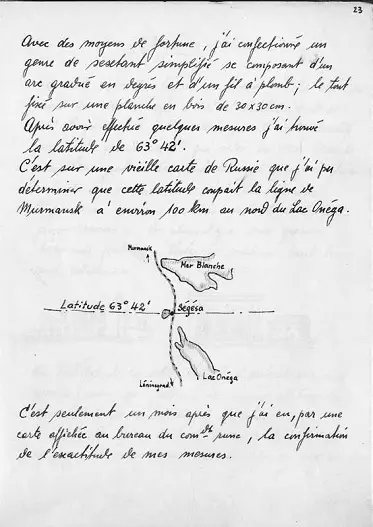 23
Avec des moyens de fortune, j'ai confectionné un
genre de sextant simplifié se composant d'un
arc gradué en degrés et d'un fil à plomb; le tout
fixé sur une planche en bois de 30x30 cm.
Après avoir effectué quelques mesures j'ai trouvé
la latitude de 63° 42'.
C'est sur une vieille carte de Russie que j'ai pu
déterminer que cette latitude coupait la ligne de
Murmansk à environ 100 km au nord du Lac Onéga.
Murmansk
Mer Blanche
Latitude 63° 42'
Ségésa
Léningrad
Lac Onéga
C'est seulement un mois après que j'ai eu, par une
carte affichée au bureau du comdt russe, la confirmation
de l'exactitude de mes mesures.